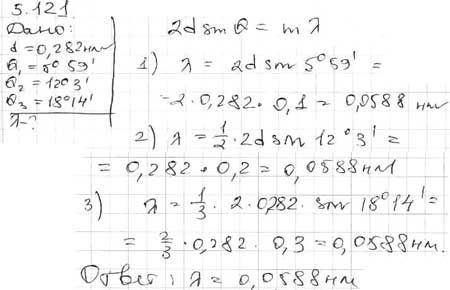 5.121.
Дано:
d = 0,282 нм
Q₁ = 5° 59'
Q₂ = 12° 3'
Q₃ = 18° 14'
λ - ?
2d sin Q = m λ
1) λ = 2d sin 5° 59' =
= 2 · 0,282 · 0,1 = 0,0588 нм
2) λ = 1/2 · 2d sin 12° 3' =
= 0,282 · 0,2 = 0,0588 нм
3) λ = 1/3 · 2 · 0,282 · sin 18° 14' =
= 2/3 · 0,282 · 0,3 = 0,0588 нм.
Ответ: λ = 0,0588 нм